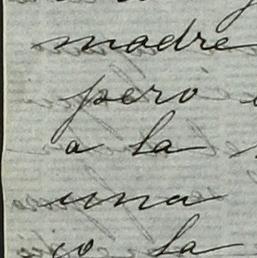 madre
pero
a la
una
la